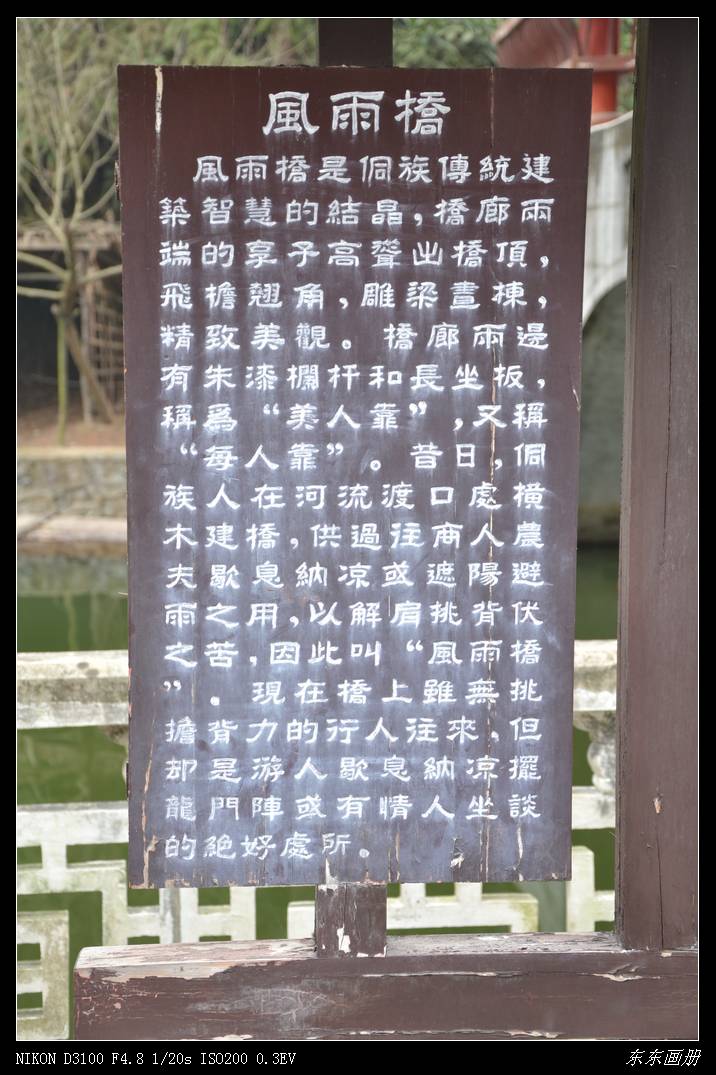 風雨橋
風雨橋是侗族傳統建
築智慧的結晶,橋廊兩
端的享子高聳出橋頂,
飛檐翘角,雕梁畫棟,
精致美觀。橋廊兩邊
有朱漆欄杆和長坐板,
稱爲“美人靠”,又稱
“每人靠”。昔日,侗
族人在河流渡口處横
木建橋,供過往商人農
夫歇息納凉或遮陽避
雨之用,以解肩挑背伏
之苦,因此叫“風雨橋
”。現在橋上雖無挑
擔背力的行人往來,但
却是游人歇息納凉擺
龍門陣或有情人坐談
的絶好處所。
NIKON D3100 F4.8 1/20s ISO200 0.3EV
东东画册